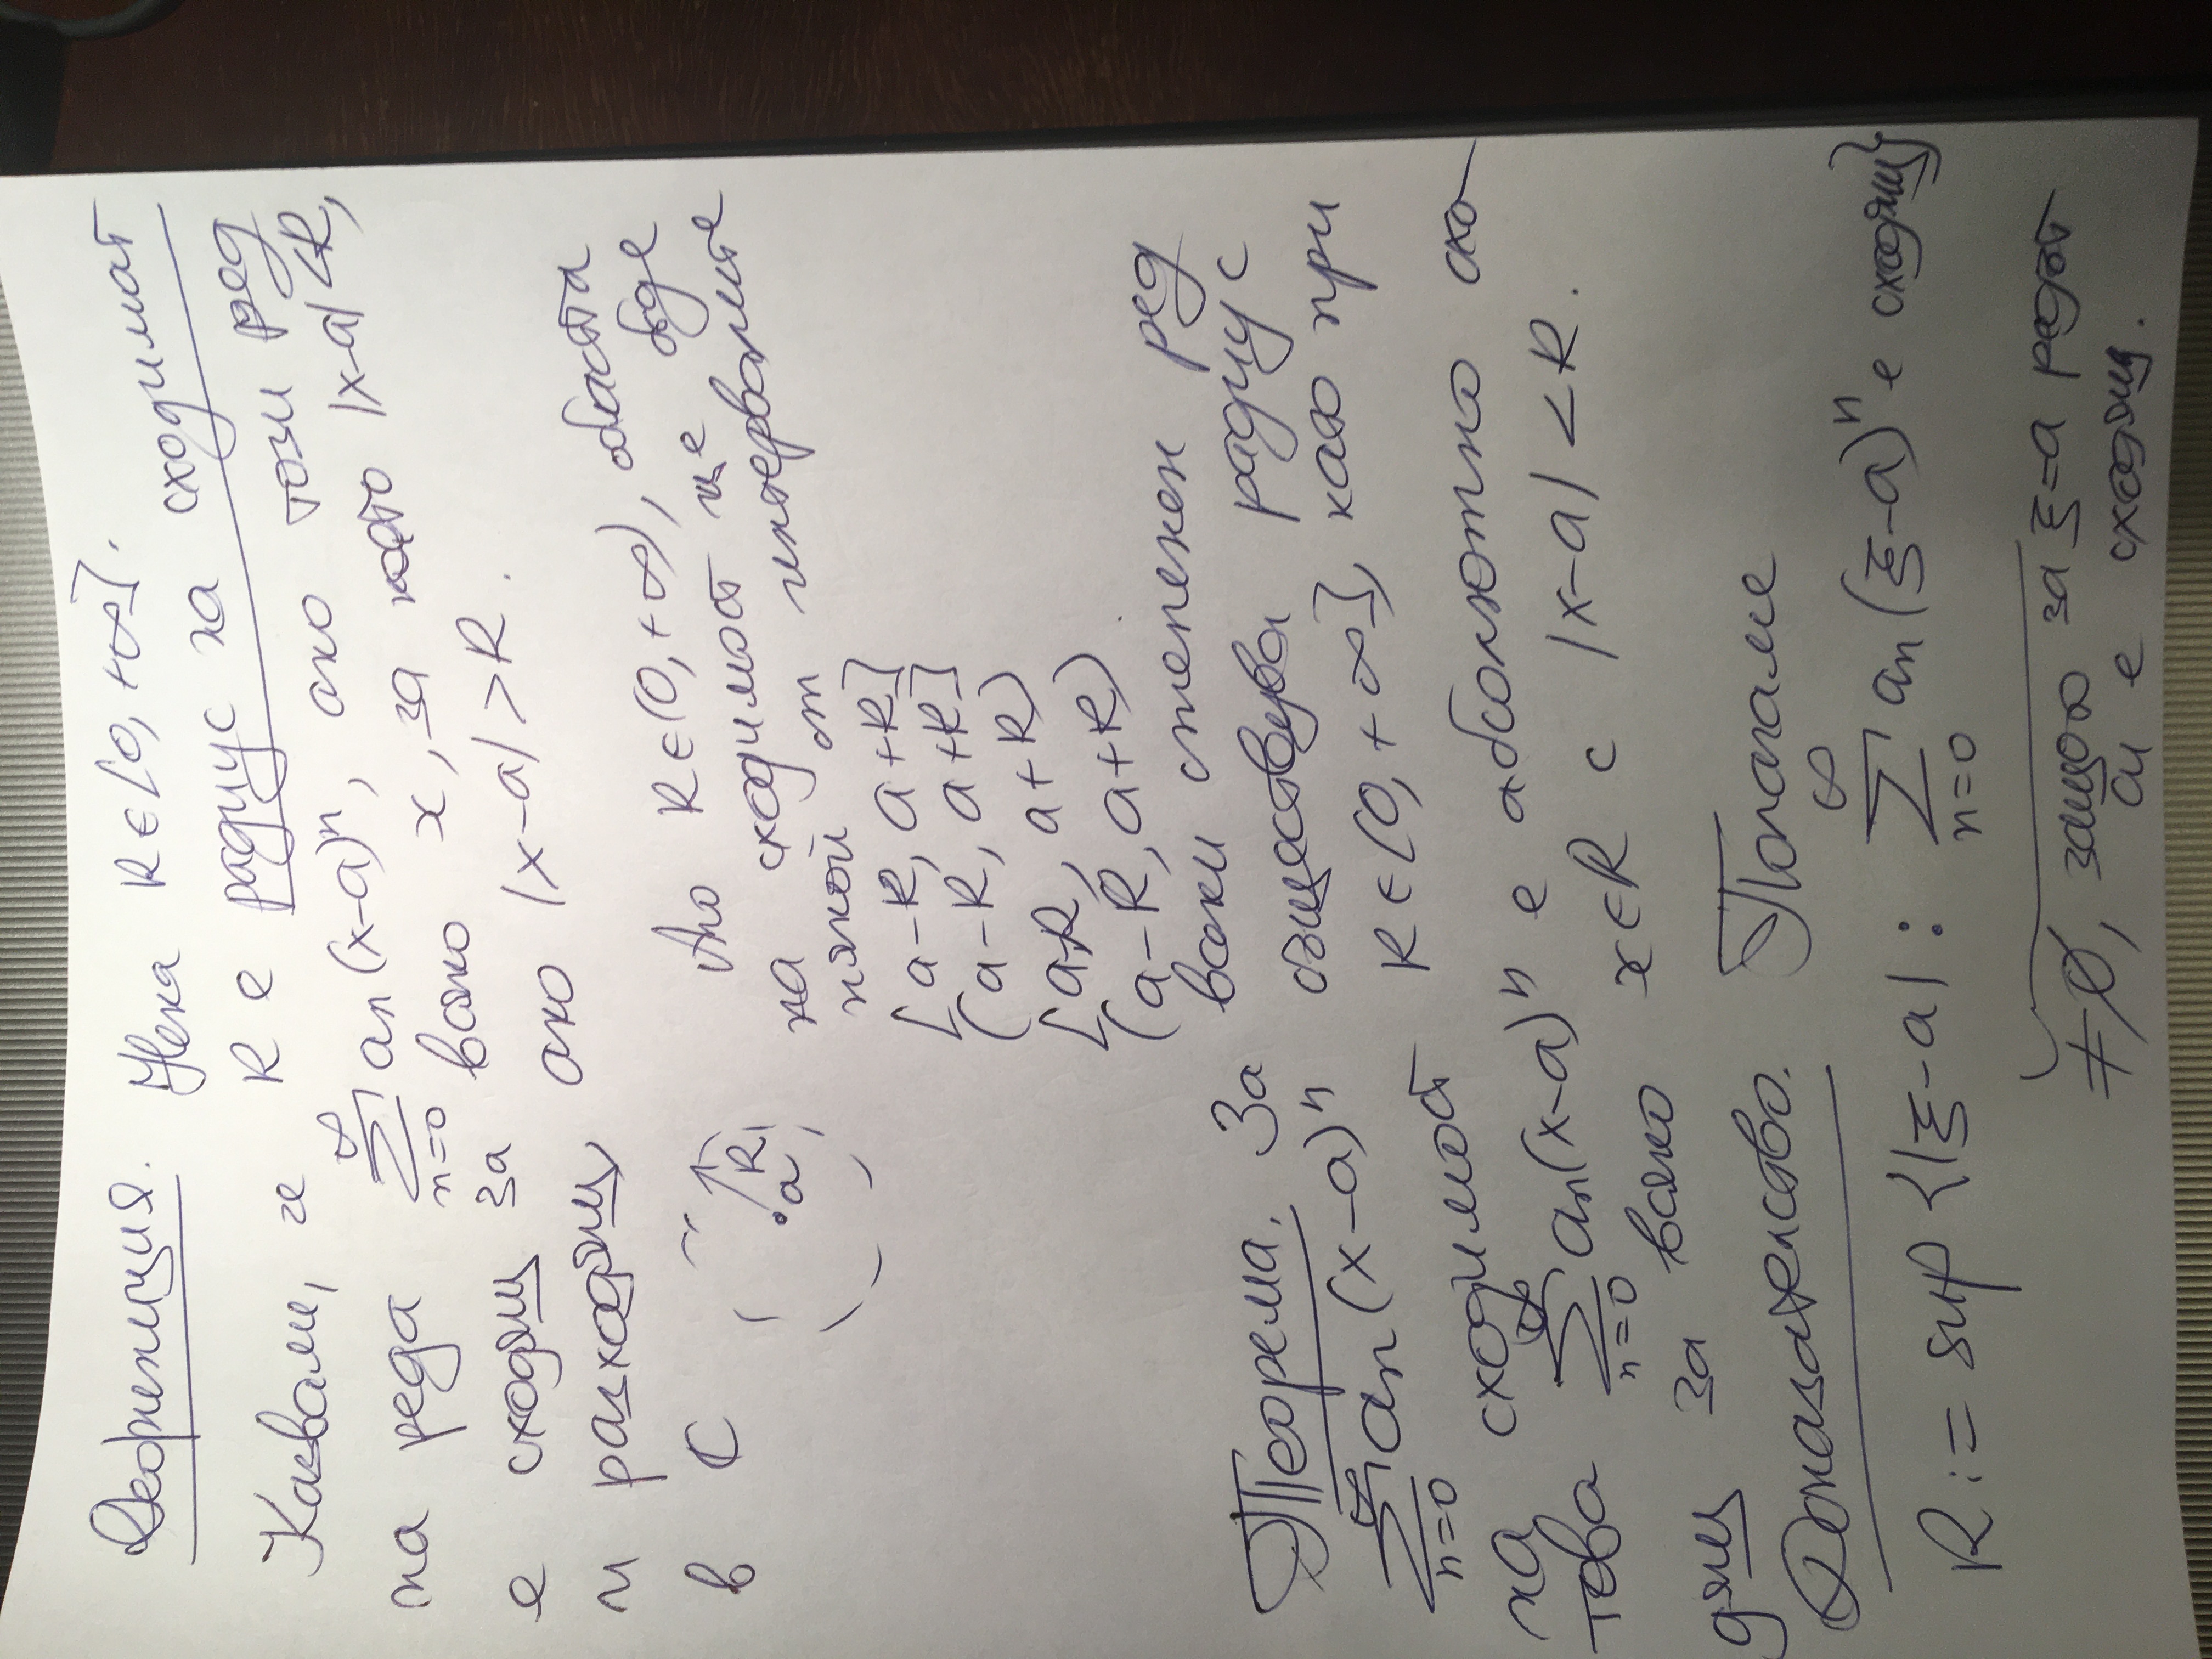 Дефиниция. Нека R∈[0, +∞].
Казваме, че R е радиус на сходимост
на реда ∑_{n=0}^{∞} a_n(x-a)^n, ако този ред
е сходящ за всяко x, за което |x-a|<R,
и разходящ, ако |x-a|>R.
в ℂ
R
a
Ако R∈(0,+∞), областта
на сходимост ще бъде
някой от интервалите
[a-R, a+R]
(a-R, a+R]
[a-R, a+R)
(a-R, a+R).
Теорема. За всеки степенен ред
∑_{n=0}^{∞} a_n(x-a)^n съществува радиус
на сходимост R∈[0,+∞], като при
това ∑_{n=0}^{∞} a_n(x-a)^n е абсолютно схо-
дящ за всяко x∈R с |x-a|<R.
Доказателство. Полагаме
R := sup {|ξ-a| : ∑_{n=0}^{∞} a_n(ξ-a)^n е сходящ}
≠∅, защото за ξ=a редът
си е сходящ.